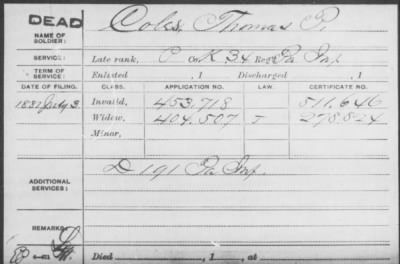 DEAD
Coles, Thomas P.
NAME OF SOLDIER:
SERVICE: Late rank, C Co K 34 Reg't Pa Inf.
TERM OF SERVICE: Enlisted , 1 Discharged , 1
DATE OF FILING. CLASS. APPLICATION NO. LAW. CERTIFICATE NO.
1881 July 3. Invalid, 453,718 511,646
Widow, 404,507 J 278,824
Minor,
ADDITIONAL SERVICES: D 191 Pa Inf.
REMARKS:
Died , 1 , at